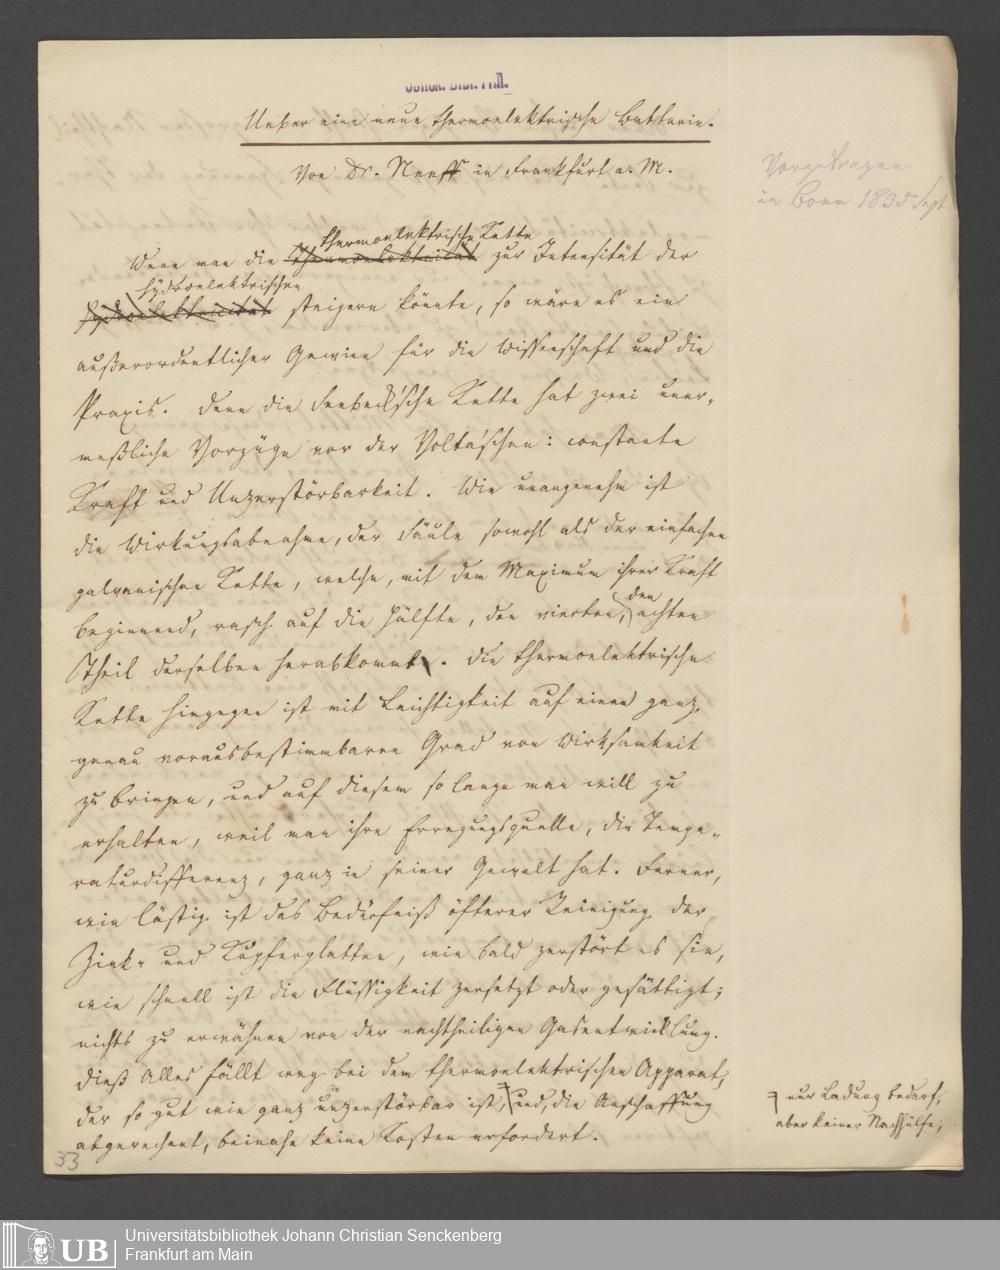 Senck. Bibl. Ffm.
Ueber eine neue thermoelektrische Batterie.
Von Dr. Neeff in Frankfurt a. M.
Vorgetragen
in Bonn 1835 Sept.
thermoelektrische Kette
Wenn man die Thermoelektricität zur Intensität der
hydroelektrischen
Hydroelektricität steigern könnte, so wäre es ein
außerordentlicher Gewinn für die Wissenschaft und die
Praxis. Denn die Seebeck'sche Kette hat zwei uner-
meßliche Vorzüge vor der Volta'schen: constante
Kraft und Unzerstörbarkeit. Wie unangenehm ist
die Wirkungsabnahme, der Säule sowohl als der einfachen
galvanischen Kette, welche, mit dem Maximum ihrer Kraft
beginnend, rasch auf die Hälfte, den vierten, den achten
Theil derselben herabkommt. Die thermoelektrische
Kette hingegen ist mit Leichtigkeit auf einen ganz
genau vorausbestimmbaren Grad von Wirksamkeit
zu bringen, und auf diesem so lange man will zu
erhalten, weil man ihre Erregungsquelle, die Tempe-
raturdifferenz, ganz in seiner Gewalt hat. Ferner,
wie lästig ist das Bedürfniß öfterer Reinigung der
Zink- und Kupferplatten, wie bald zerstört es sie,
wie schnell ist die Flüssigkeit zersetzt oder gesättigt;
nichts zu erwähnen von der nachtheiligen Gasentwicklung.
Dieß Alles fällt weg bei dem thermoelektrischen Apparat,
der so gut wie ganz unzerstörbar ist, und, die Anschaffung
abgerechnet, beinahe keine Kosten erfordert.
nur Ladung bedarf,
aber keiner Nachhülfe,
33
UB
Universitätsbibliothek Johann Christian Senckenberg
Frankfurt am Main